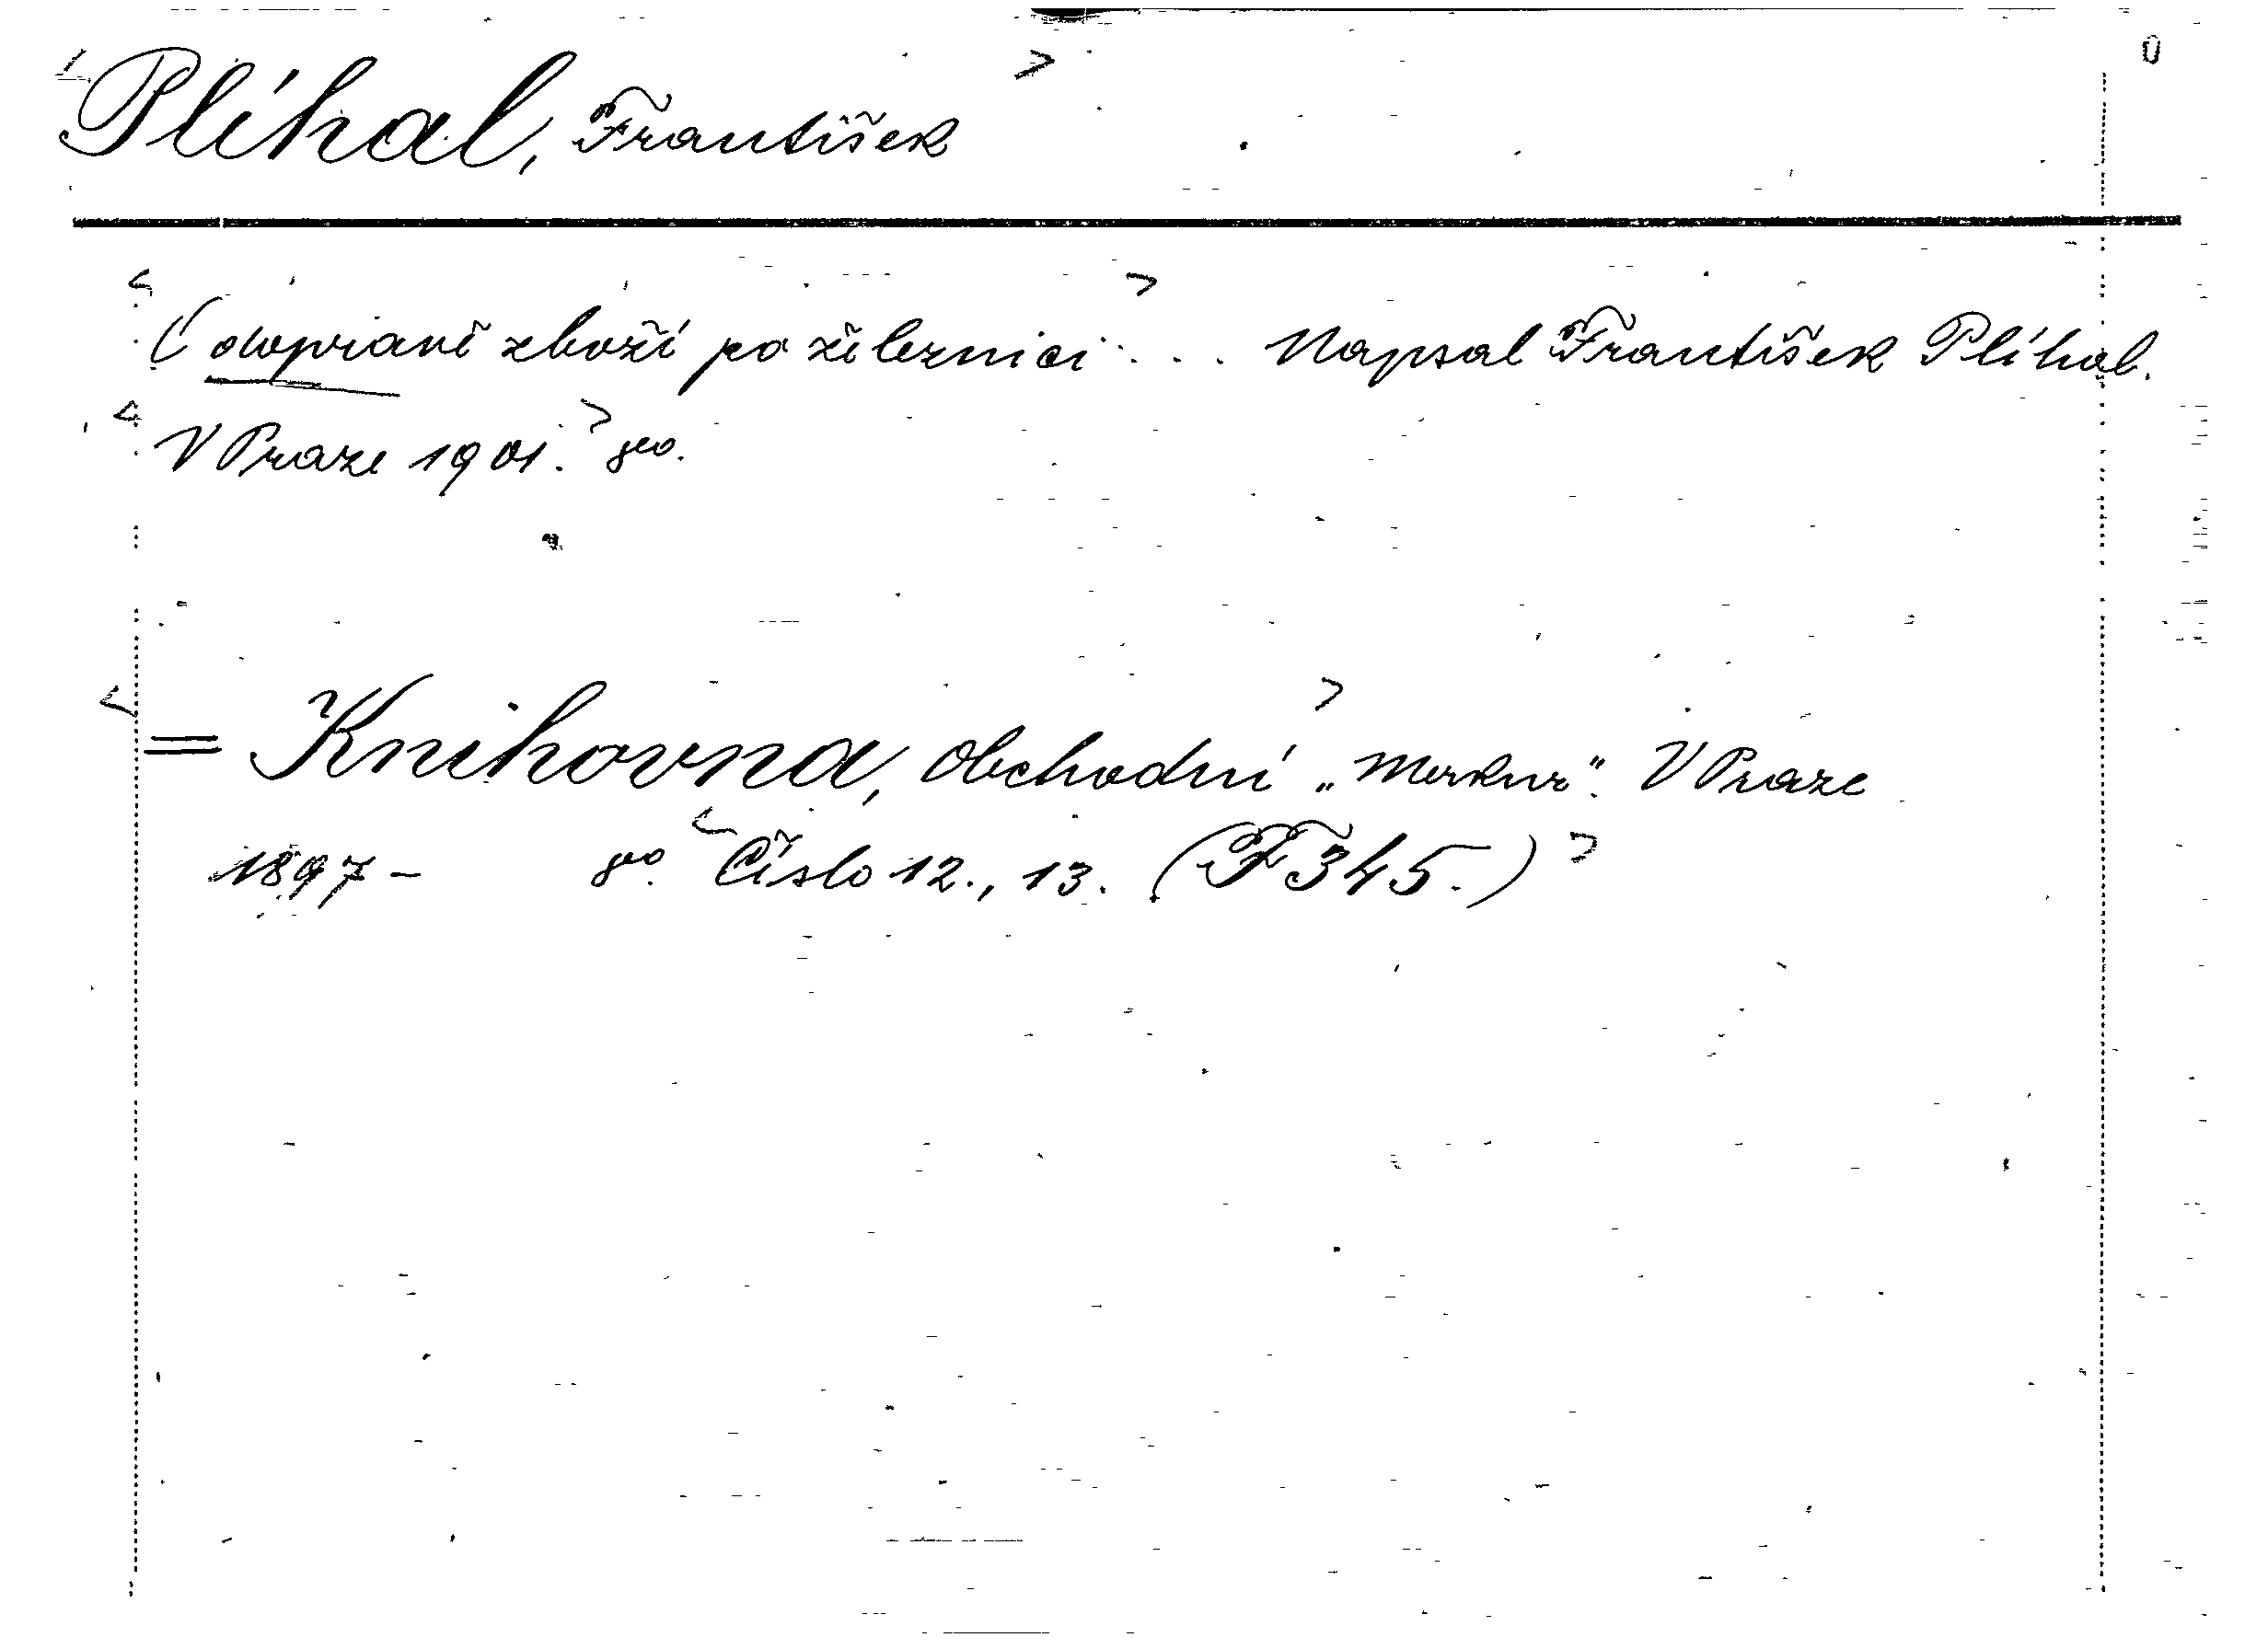 Plíhal, František
O dopravě zboží po železnici . . . Napsal František Plíhal.
V Praze 1901. 8vo.
= Knihovna, obchodní „Merkur“. V Praze
1897 – 8vo. Číslo 12., 13. (F 345.)